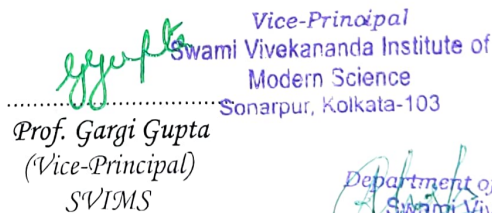 GGupta
Vice-Principal
Swami Vivekananda Institute of
Modern Science
Sonarpur, Kolkata-103
Prof. Gargi Gupta
(Vice-Principal)
SVIMS
Department of
Swami Viv